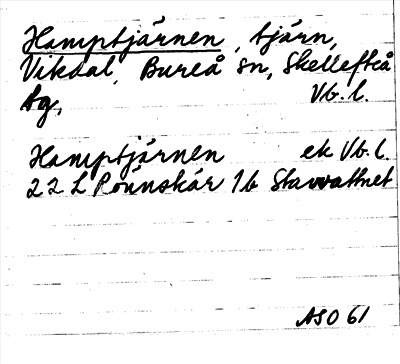 Hamptjärnen, tjärn,
Vikdal, Bureå sn, Skellefteå
tg, Vb. l.
Hamptjärnen ek Vb. l.
22 L Rönnskär 1b Stavvattnet
ASO 61